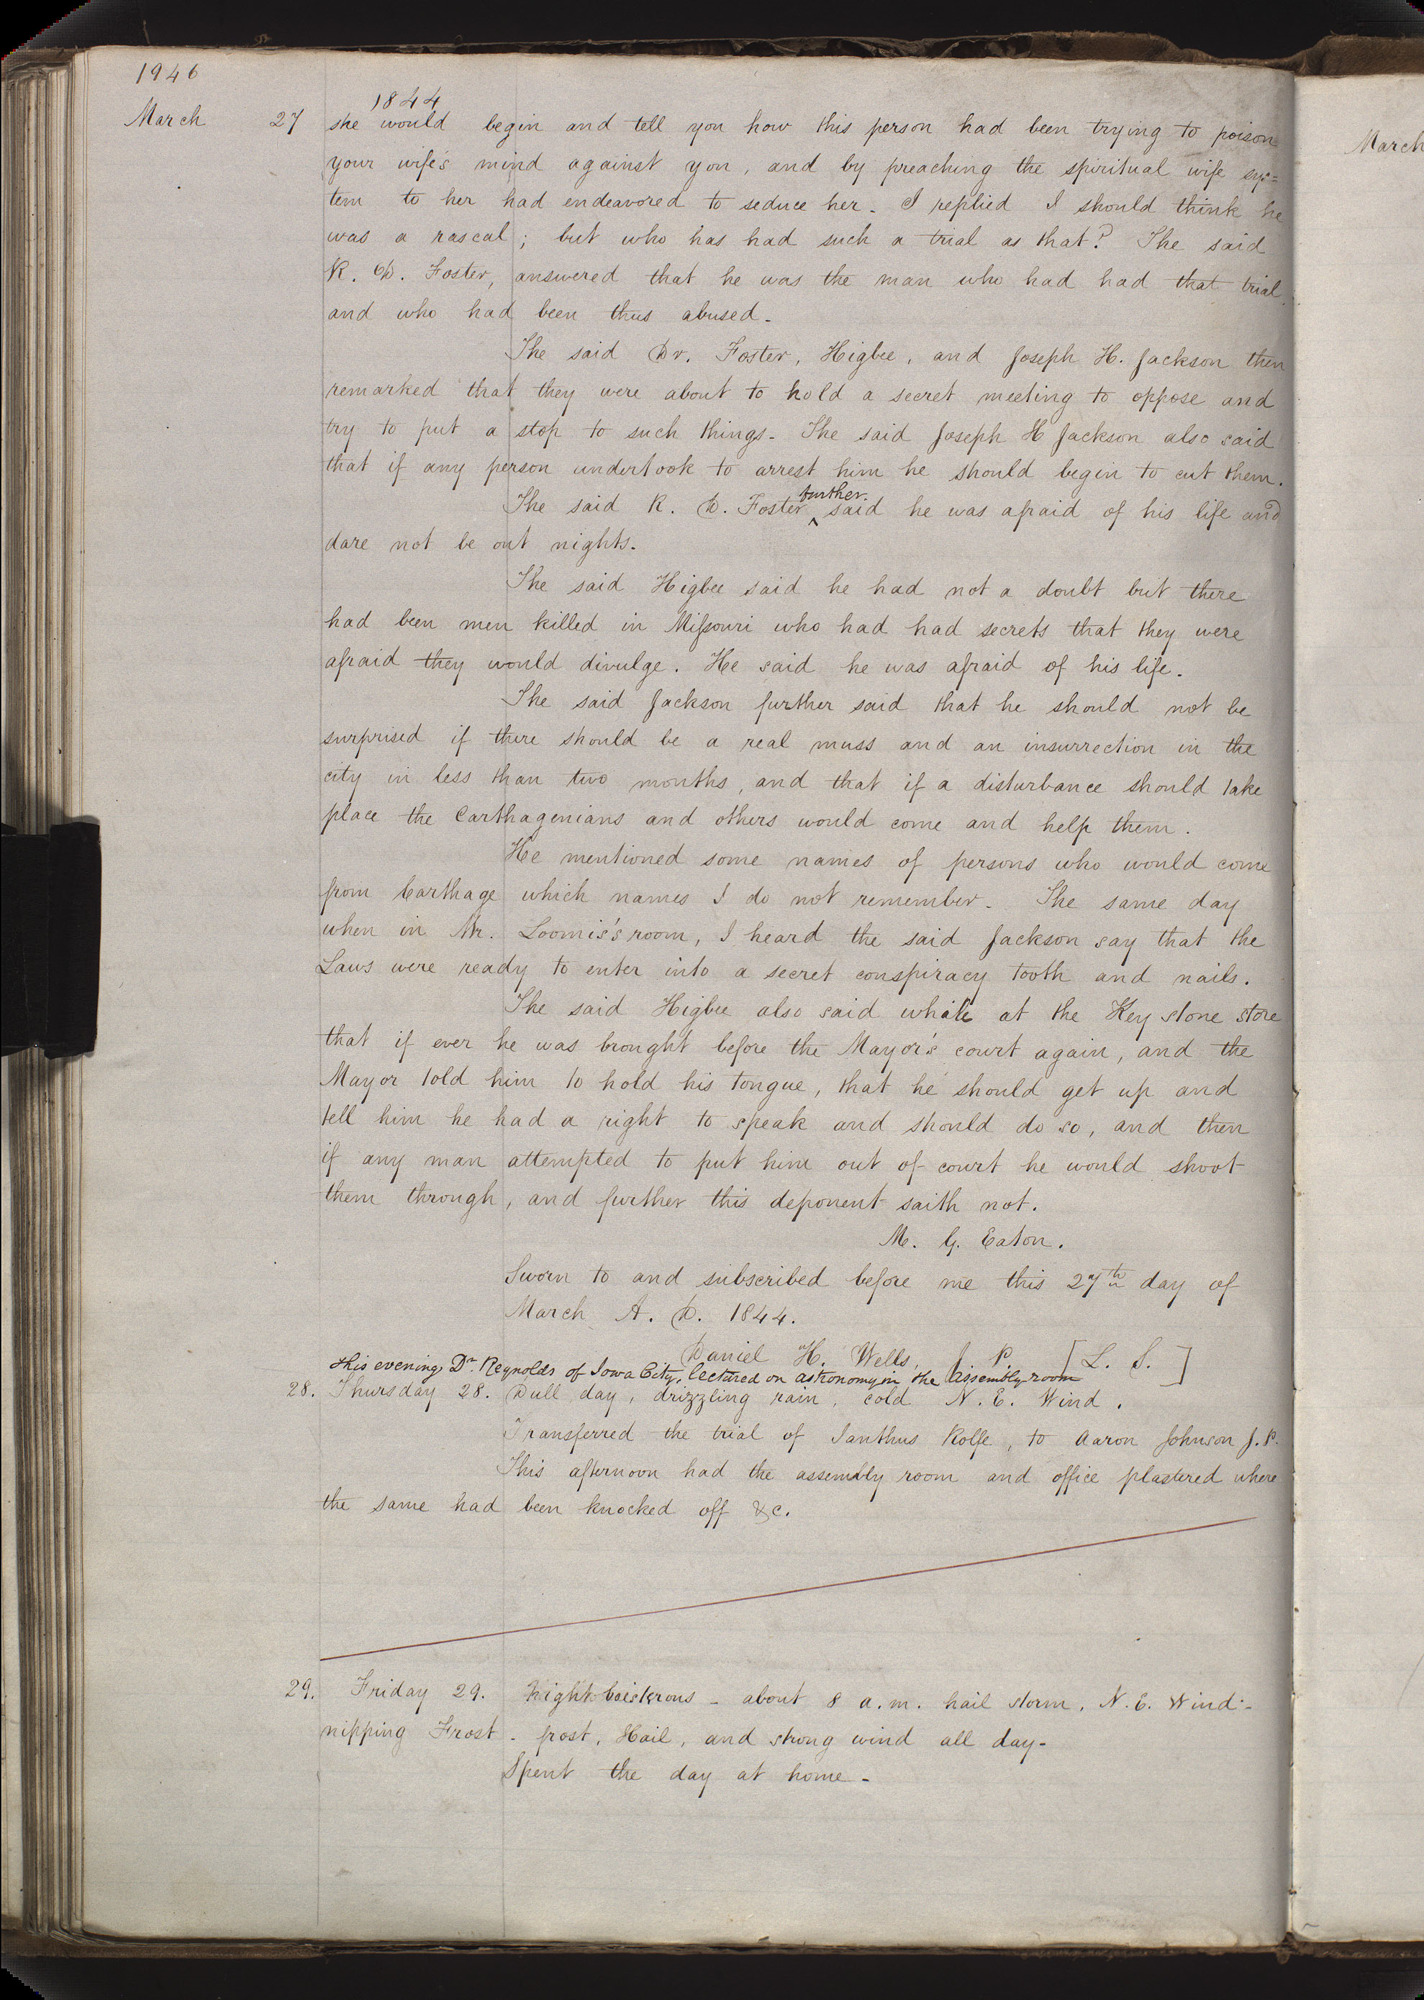 1946
1844
March 27 she would begin and tell you how this person had been trying to poison
your wife's mind against you, and by preaching the spiritual wife sys=
tem to her had endeavored to seduce her. I replied I should think he
was a rascal; but who has had such a trial as that? The said
R. D. Foster, answered that he was the man who had had that trial
and who had been thus abused.
The said Dr. Foster, Higbee, and Joseph H. Jackson then
remarked that they were about to hold a secret meeting to oppose and
try to put a stop to such things. The said Joseph H Jackson also said
that if any person undertook to arrest him he should begin to cut them.
The said R. D. Foster further said he was afraid of his life and
dare not be out nights.
The said Higbee said he had not a doubt but there
had been men killed in Missouri who had had secrets that they were
afraid they would divulge. He said he was afraid of his life.
The said Jackson further said that he should not be
surprised if there should be a real muss and an insurrection in the
city in less than two months, and that if a disturbance should take
place the Carthagenians and others would come and help them.
He mentioned some names of persons who would come
from Carthage which names I do not remember. The same day
when in Mr. Loomis's room, I heard the said Jackson say that the
Laws were ready to enter into a secret conspiracy tooth and nails.
The said Higbee also said while at the Key stone store
that if ever he was brought before the Mayor's court again, and the
Mayor told him to hold his tongue, that he should get up and
tell him he had a right to speak and should do so, and then
if any man attempted to put him out of court he would shoot
them through, and further this deponent saith not.
M. G. Eaton.
Sworn to and subscribed before me this 27th day of
March A. D. 1844.
Daniel H. Wells, J. P. [L. S.]
this evening, Dr. Reynolds of Iowa City, lectured on astronomy in the assembly room
28. Thursday 28. Dull day, drizzling rain, cold N. E. Wind.
Transferred the trial of Ianthus Rolfe, to Aaron Johnson J. P.
This afternoon had the assembly room and office plastered where
the same had been knocked off &c.
29. Friday 29. Night boisterous - about 8 a.m. hail storm, N. E. Wind -
nipping Frost - frost, Hail, and strong wind all day -
Spent the day at home -
March